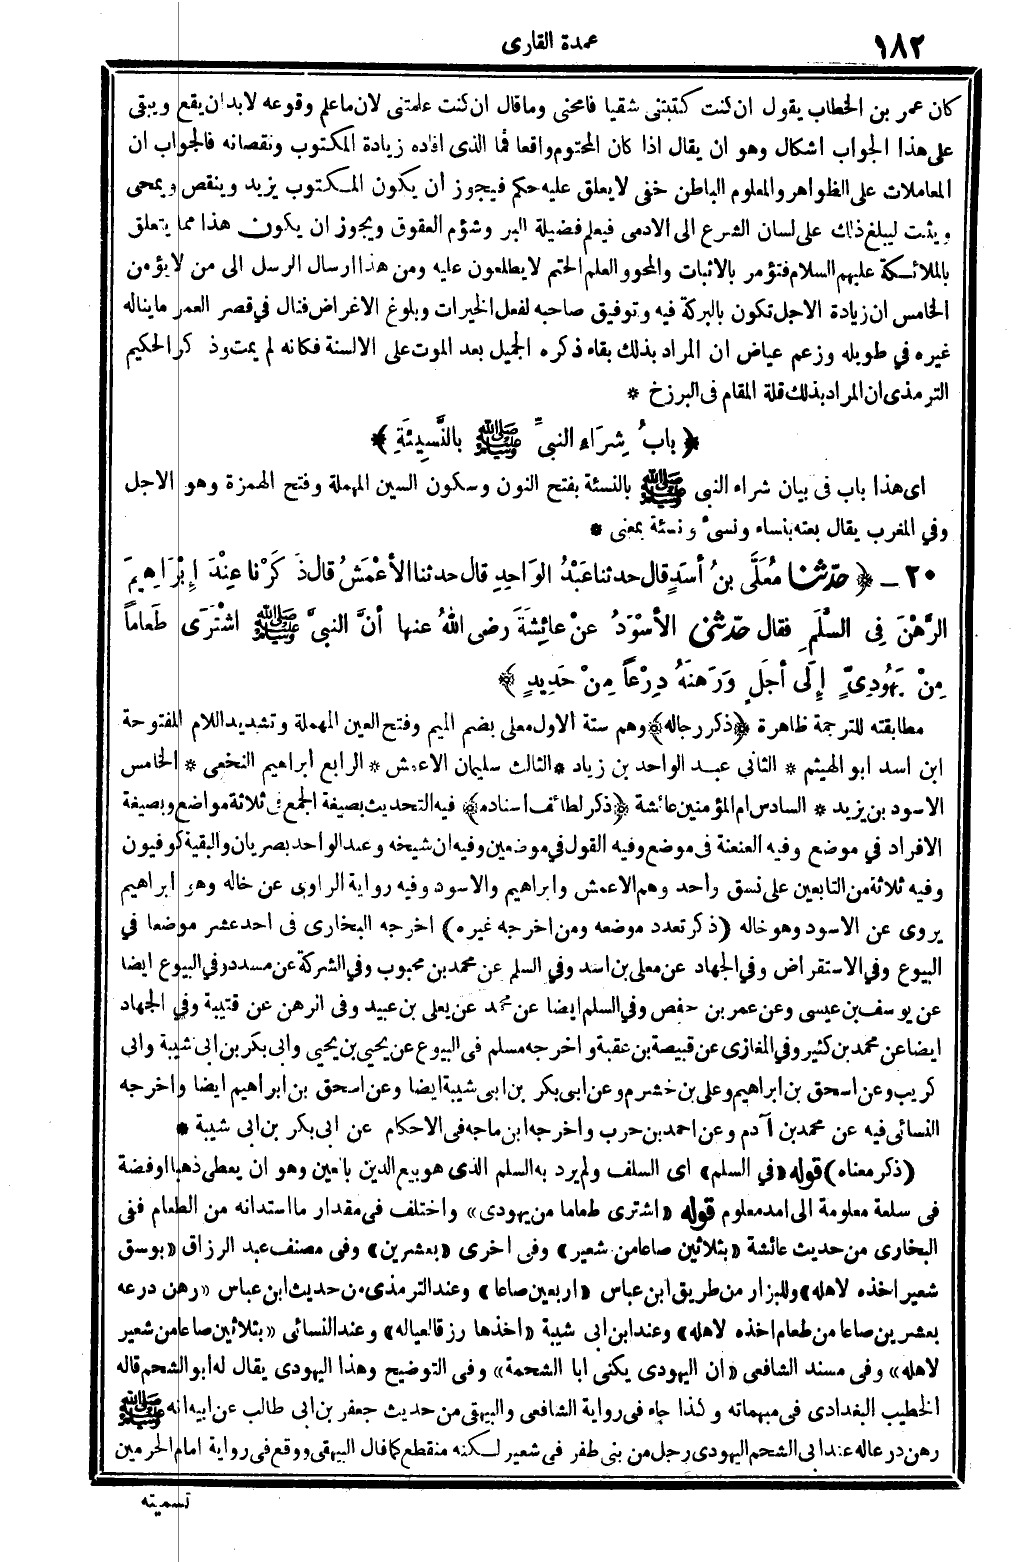 ١٨٢
عمدة القارى
كان عمر بن الخطاب يقول ان كنت كتبتنى شقيا فامحنى وما قال ان كنت علمتنى لان ما علم وقوعه لابد ان يقع ويبقى
على هذا الجواب اشكال وهو ان يقال اذا كان المحتوم واقعا فما الذى افاده زيادة المكتوب ونقصانه فالجواب ان
المعاملات على الظواهر والمعلوم الباطن خفى لا يعلق عليه حكم فيجوز أن يكون المكتوب يزيد وينقص ويمحى
ويثبت ليبلغ ذلك على لسان الشرع الى الادمى فيعلم فضيلة البر وشؤم العقوق ويجوز ان يكون هذا مما يتعلق
بالملائكة عليهم السلام فتؤمر بالاثبات والمحو والعلم الحتم لا يطلعون عليه ومن هذا ارسال الرسل الى من لا يؤمن
الخامس ان زيادة الاجل تكون بالبركة فيه وتوفيق صاحبه لفعل الخيرات وبلوغ الاغراض فنال في قصر العمر ما يناله
غيره في طويله وزعم عياض ان المراد بذلك بقاء ذكره الجميل بعد الموت على الالسنة فكانه لم يمت وذكر الحكيم
الترمذى ان المراد بذلك قلة المقام فى البرزخ *
﴿ بابُ شِرَاءِ النبىِّ ﷺ بالنَّسِيئَةِ ﴾
اى هذا باب فى بيان شراء النبى ﷺ بالنسئة بفتح النون وسكون السين المهملة وفتح الهمزة وهو الاجل
وفي المغرب يقال بعته بنساء ونسىء ونسئة بمعنى *
٢٠ ـ ﴿ حدّثنا مُعَلَّى بنُ أسَدٍ قال حدثنا عَبْدُ الوَاحِدِ قال حدثنا الأعْمَشُ قال ذَكَرْنا عِنْدَ إبْرَاهِيمَ
الرَّهْنَ فِى السَّلَمِ فقال حدّثنى الأسْوَدُ عنْ عائِشَةَ رضى اللهُ عنها أنَّ النبىَّ ﷺ اشْتَرَى طَعاماً
مِنْ يَهُودِىٍّ إِلَى أجَلٍ وَرَهنَهُ دِرْعاً مِنْ حَدِيدٍ ﴾
مطابقته للترجمة ظاهرة ﴿ذكر رجاله﴾ وهم ستة الاول معلى بضم الميم وفتح العين المهملة وتشديد اللام المفتوحة
ابن اسد ابو الهيثم * الثانى عبد الواحد بن زياد * الثالث سليمان الاعمش * الرابع أبراهيم النخعى * الخامس
الاسود بن يزيد * السادس ام المؤمنين عائشة ﴿ذكر لطائف اسناده﴾ فيه التحديث بصيغة الجمع فى ثلاثة مواضع وبصيغة
الافراد في موضع وفيه العنعنة فى موضع وفيه القول في موضعين وفيه ان شيخه وعبد الواحد بصريان والبقية كوفيون
وفيه ثلاثة من التابعين على نسق واحد وهم الاعمش وابراهيم والاسود وفيه رواية الراوى عن خاله وهو ابراهيم
يروى عن الاسود وهو خاله (ذكر تعدد موضعه ومن اخرجه غيره) اخرجه البخارى فى احد عشر موضعا في
البيوع وفي الاستقراض وفي الجهاد عن معلى بن اسد وفي السلم عن محمد بن محبوب وفي الشركة عن مسدد وفي البيوع ايضا
عن يوسف بن عيسى وعن عمر بن حفص وفي السلم ايضا عن محمد عن يعلى بن عبيد وفى الرهن عن قتيبة وفي الجهاد
ايضا عن محمد بن كثير وفي المغازى عن قبيصة بن عقبة واخرجه مسلم فى البيوع عن يحيى بن يحيى وابى بكر بن ابى شيبة وابى
كريب وعن اسحق بن ابراهيم وعلى بن خشرم وعن ابى بكر بن ابى شيبة ايضا وعن اسحق بن ابراهيم ايضا واخرجه
النسائى فيه عن محمد بن آدم وعن احمد بن حرب واخرجه ابن ماجه فى الاحكام عن ابى بكر بن ابى شيبة *
(ذكر معناه) قوله «في السلم» اى السلف ولم يرد به السلم الذى هو بيع الدين بالعين وهو ان يعطى ذهبا او فضة
فى سلعة معلومة الى امد معلوم قوله «اشترى طعاما من يهودى» واختلف فى مقدار ما استدانه من الطعام ففى
البخارى من حديث عائشة «بثلاثين صاعا من شعير» وفى اخرى «بعشرين» وفى مصنف عبد الرزاق «بوسق
شعير اخذه لاهله» وللبزار من طريق ابن عباس «اربعين صاعا» وعند الترمذى من حديث ابن عباس «رهن درعه
بعشرين صاعا من طعام اخذه لاهله» وعند ابن ابى شيبة «اخذها رزقا لعياله» وعند النسائى «بثلاثين صاعا من شعير
لاهله» وفى مسند الشافعى «ان اليهودى يكنى ابا الشحمة» وفى التوضيح وهذا اليهودى يقال له ابو الشحم قاله
الخطيب البغدادى فى مبهماته وكذا جاء فى رواية الشافعى والبيهقى من حديث جعفر بن ابى طالب عن ابيه انه ﷺ
رهن درعا له عند ابى الشحم اليهودى رجل من بنى ظفر فى شعير لكنه منقطع كما قال البيهقى ووقع فى رواية امام الحرمين
تسميته